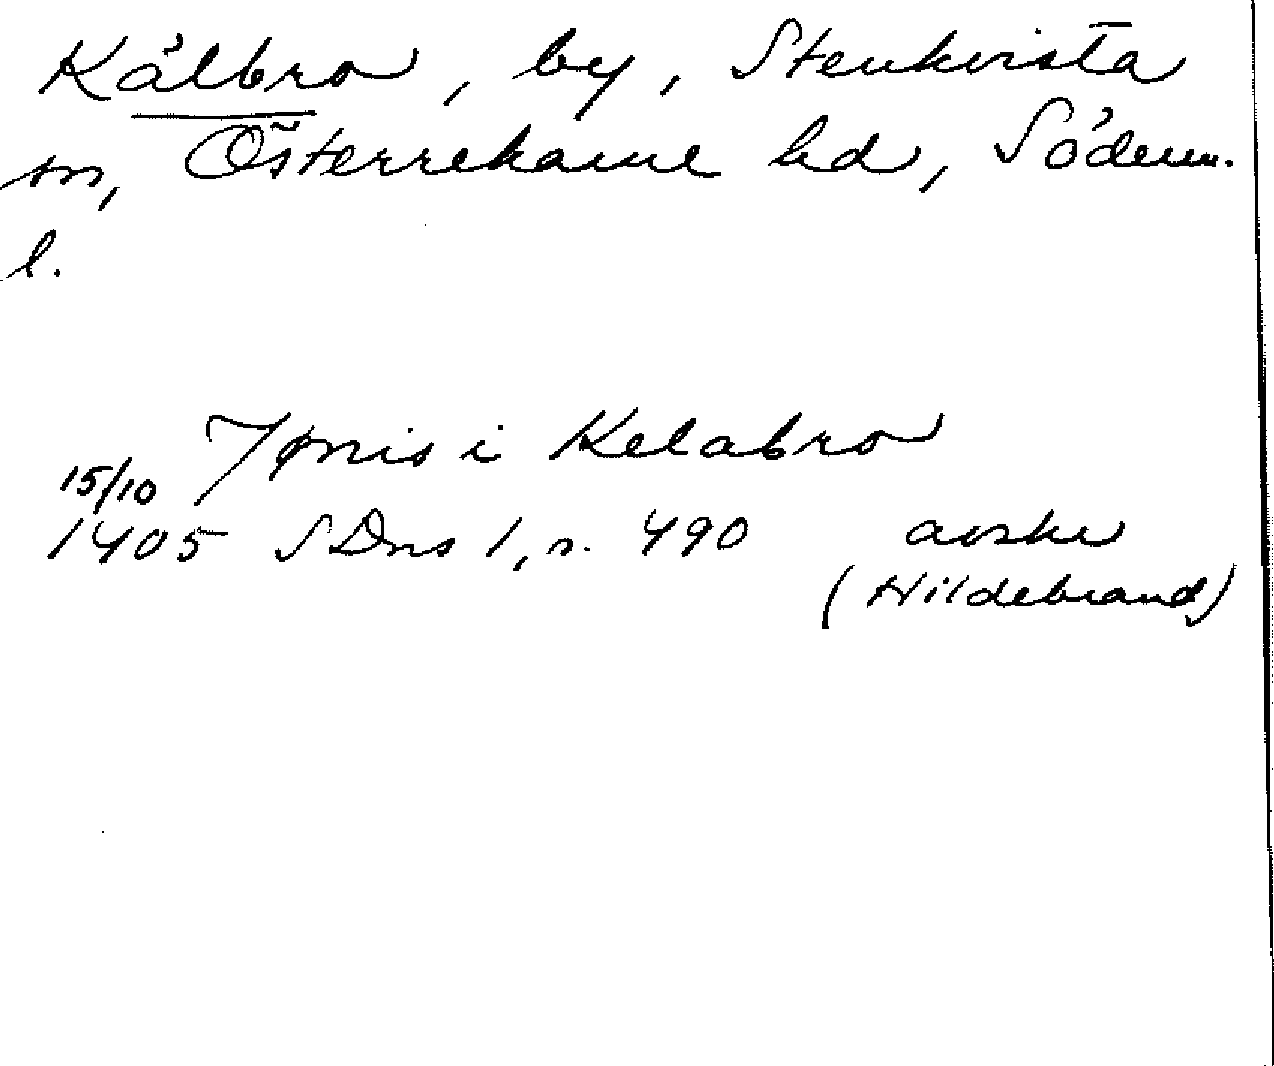 Kälbro, by, Stenkvista
sn, Österrekarne hd, Söderm.
l.
Jønis i Kelabro
15/10
1405 SDns 1, s. 490 avskr
(Hildebrand)